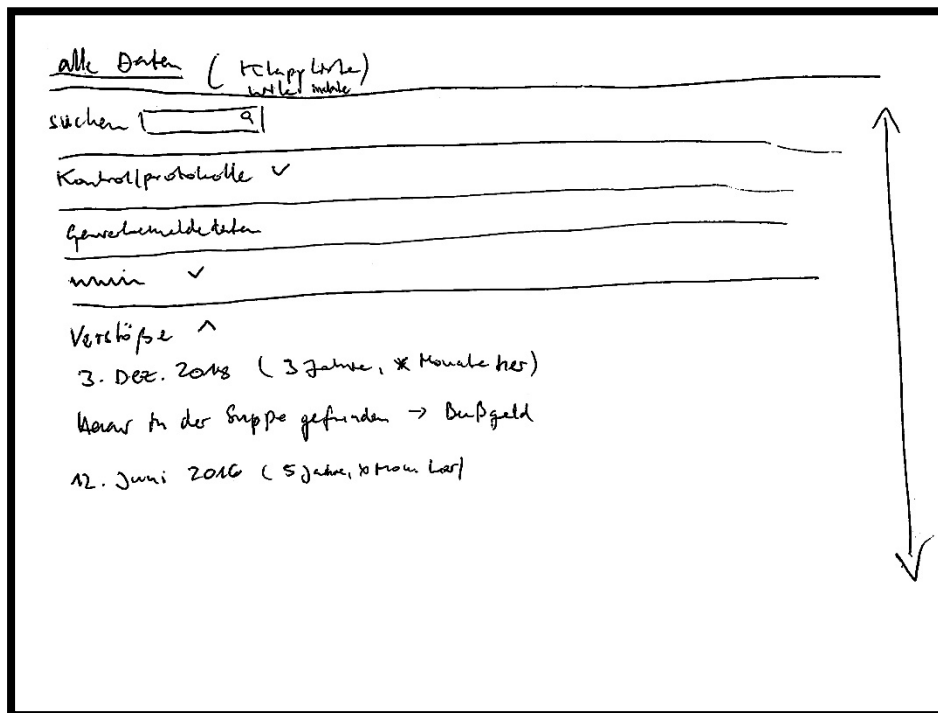 alle Daten (Klappliste)
suchen
Kontrollprotokolle
Gewerbemeldedaten
Verstöße
3. Dez. 2018 (3 Jahre, * Monate her)
Haar in der Suppe gefunden → Bußgeld
12. Juni 2016 (5 Jahre,